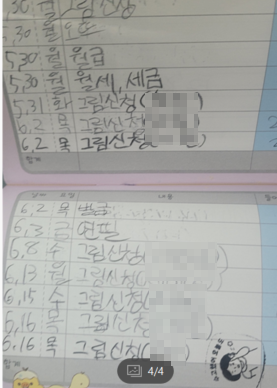 .30 월 그림신청
.30 월
5,30 월 월급
5,30 월 월세, 세금
5,31 화 그림신청(
6.2 목 그림신청(
6,2 목 그림신청(
합계
내용
6.2 목
6.3 금 연필
6,8 수 그림신청(
6,13 월 그림신청(
6,15 수 그림신청(
6,16 목 그림신청(
6.16 목 그림신청(
합계
4/4